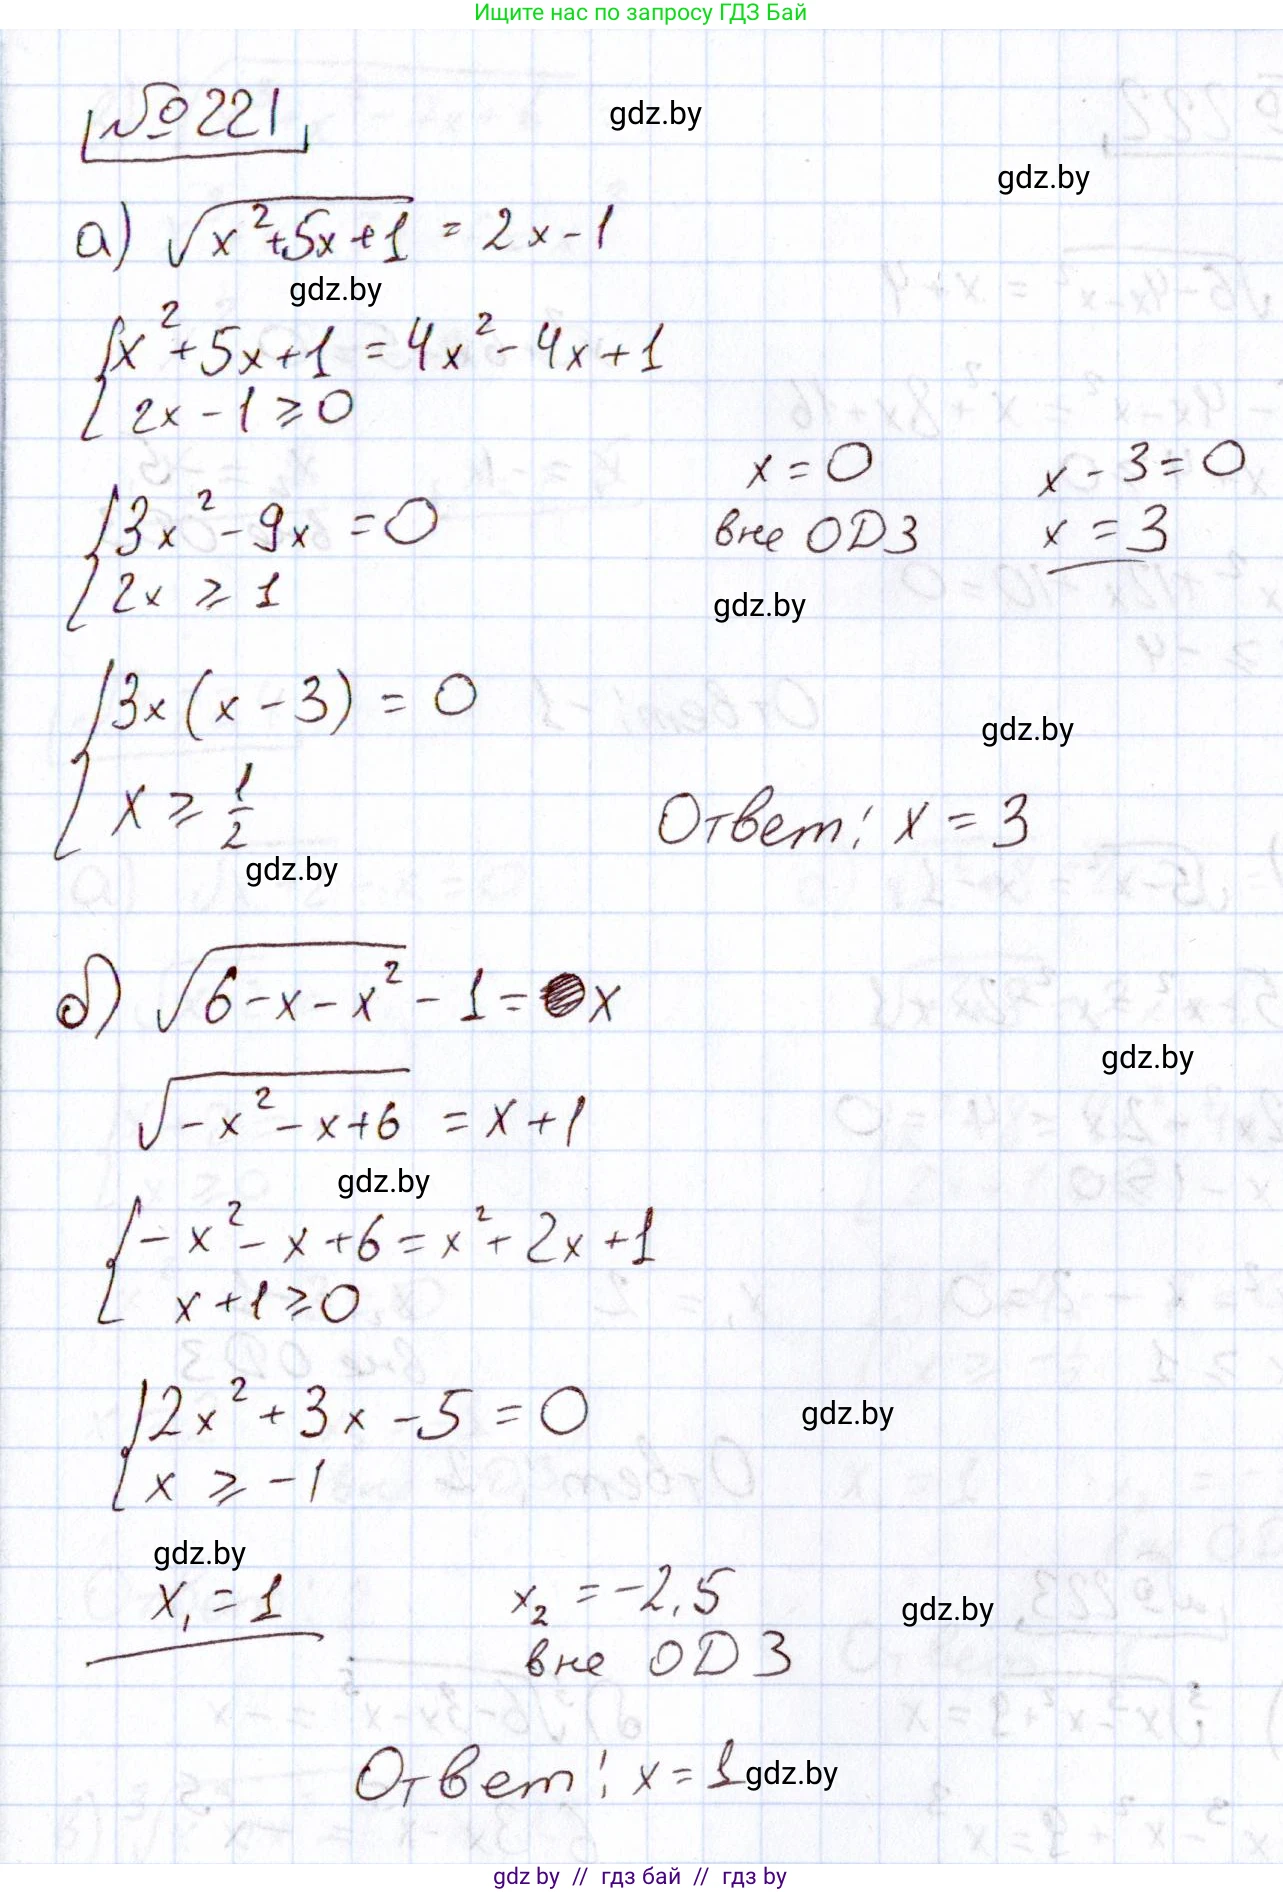 Ищите нас по запросу ГДЗ Бай
№221
gdz.by
gdz.by
а) √(x²+5x+1) = 2x-1
gdz.by
{x²+5x+1 = 4x²-4x+1
{2x-1 ≥ 0
{3x²-9x = 0
{2x ≥ 1
x = 0
вне ОДЗ
x - 3 = 0
x = 3
gdz.by
{3x(x-3) = 0
{x ≥ 1/2
gdz.by
gdz.by
Ответ: x = 3
б) √(6-x-x²) - 1 = x
gdz.by
√(-x²-x+6) = x+1
gdz.by
{-x²-x+6 = x²+2x+1
{x+1 ≥ 0
{2x²+3x-5 = 0
{x ≥ -1
gdz.by
gdz.by
x₁ = 1
x₂ = -2,5
вне ОДЗ
gdz.by
Ответ: x = 1
gdz.by
gdz by // гдз бай // гдз by